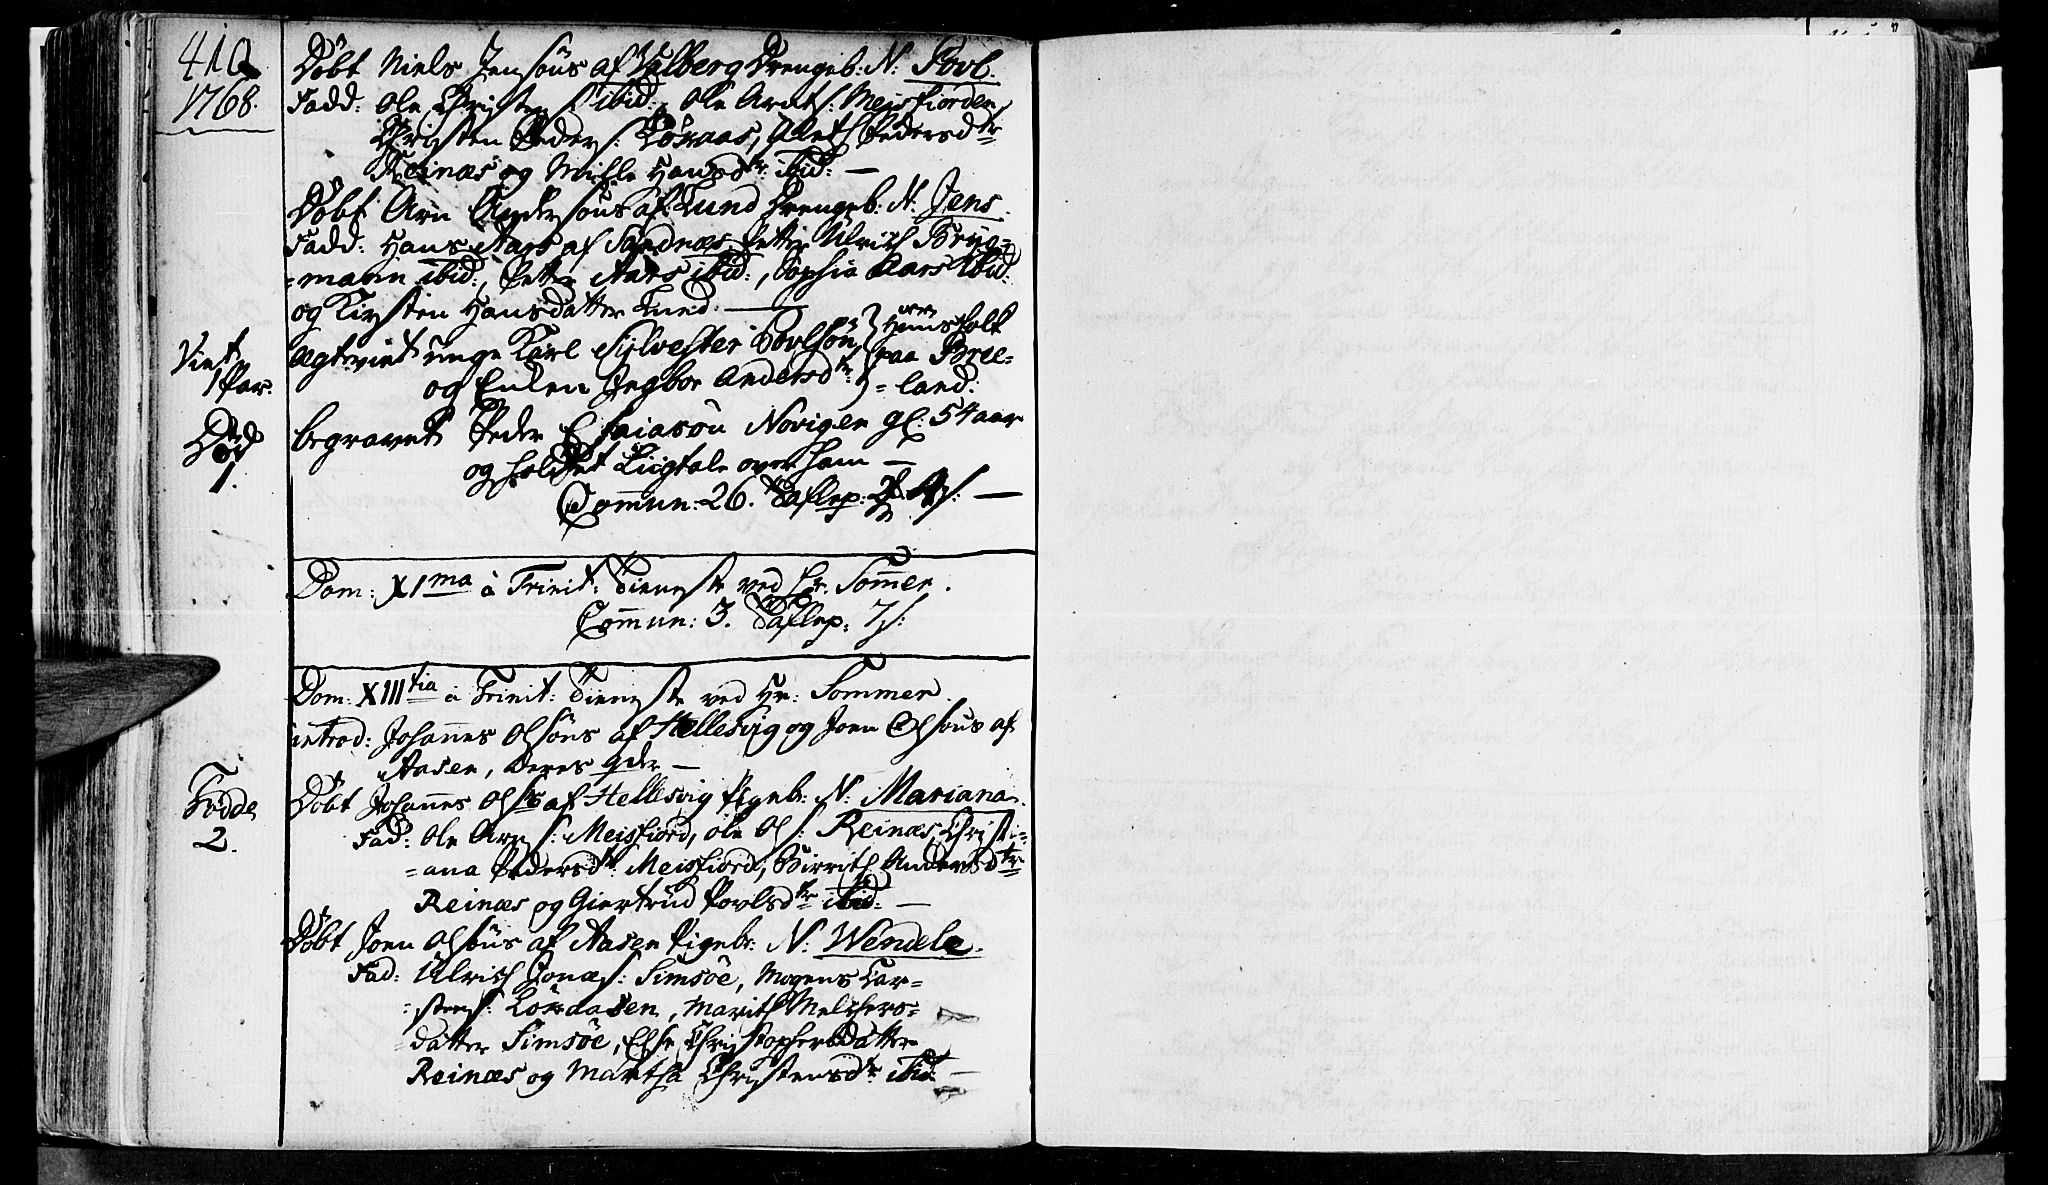 410
1768.
Döbt Niels Jensöns af Valberg Drengeb: N: Povl.
Fadd: Ole Christens: ibid:, Ole Arnts: Meisfiorden,
Christen Peders: Lönaas, Pedersdtr
Reinæs og Mille Hansdtr: ibid: —
Döbt Arn Andersöns af Lund Drengeb: N: Jens.
Fadd: Hans Aars af Sandnæs, Petter Ulrich Bryg=
=mann ibid:, Petter Aars ibid:, Sophia Aars ibid:
og Kirsten Hansdatter —
Viet 1 Par.
Ægteviet unge Karl Sylvester Povlsön } Huusholt
og Enken Ingbor Andersdtr: } paa Bree=
=land:
Död 1.
begravet Peder Esaiasön Novigen gl: 54 aar
og holdet Liigtale over ham —
Commun: 26. Taflep: —
Dom: XI ma à Trinit: Tieneste ved Hr. Sommer.
Commun: 3. Taflep: 7 s:
Dom: XIII tia à Trinit: Tieneste ved Hr: Sommer.
introd: Johannes Olsöns af Hellesvig og Joen Olsöns af
Aasen, deres qder —
Födde 2.
Döbt Johannes Olsöns af Hellesvig Pigeb: N: Mariana.
Fad: Ole Arns: Meisfiord, Ole Ols: Reinæs, Christi=
=ana Pedersdtr Meisfiord, Birrith Andersdtr
Reinæs og Giertrud Povlsdtr ibid: —
Döbt Joen Olsöns af Aasen Pigeb: N: Wendele.
Fad: Ulrich Jonæs: Simsöe, Mogens Car=
=stens: Löxdasen, Marith Melchers=
=datter Simsöe, Else Christophersdatter
Reinæs og Martha Christensdtr ibid: —